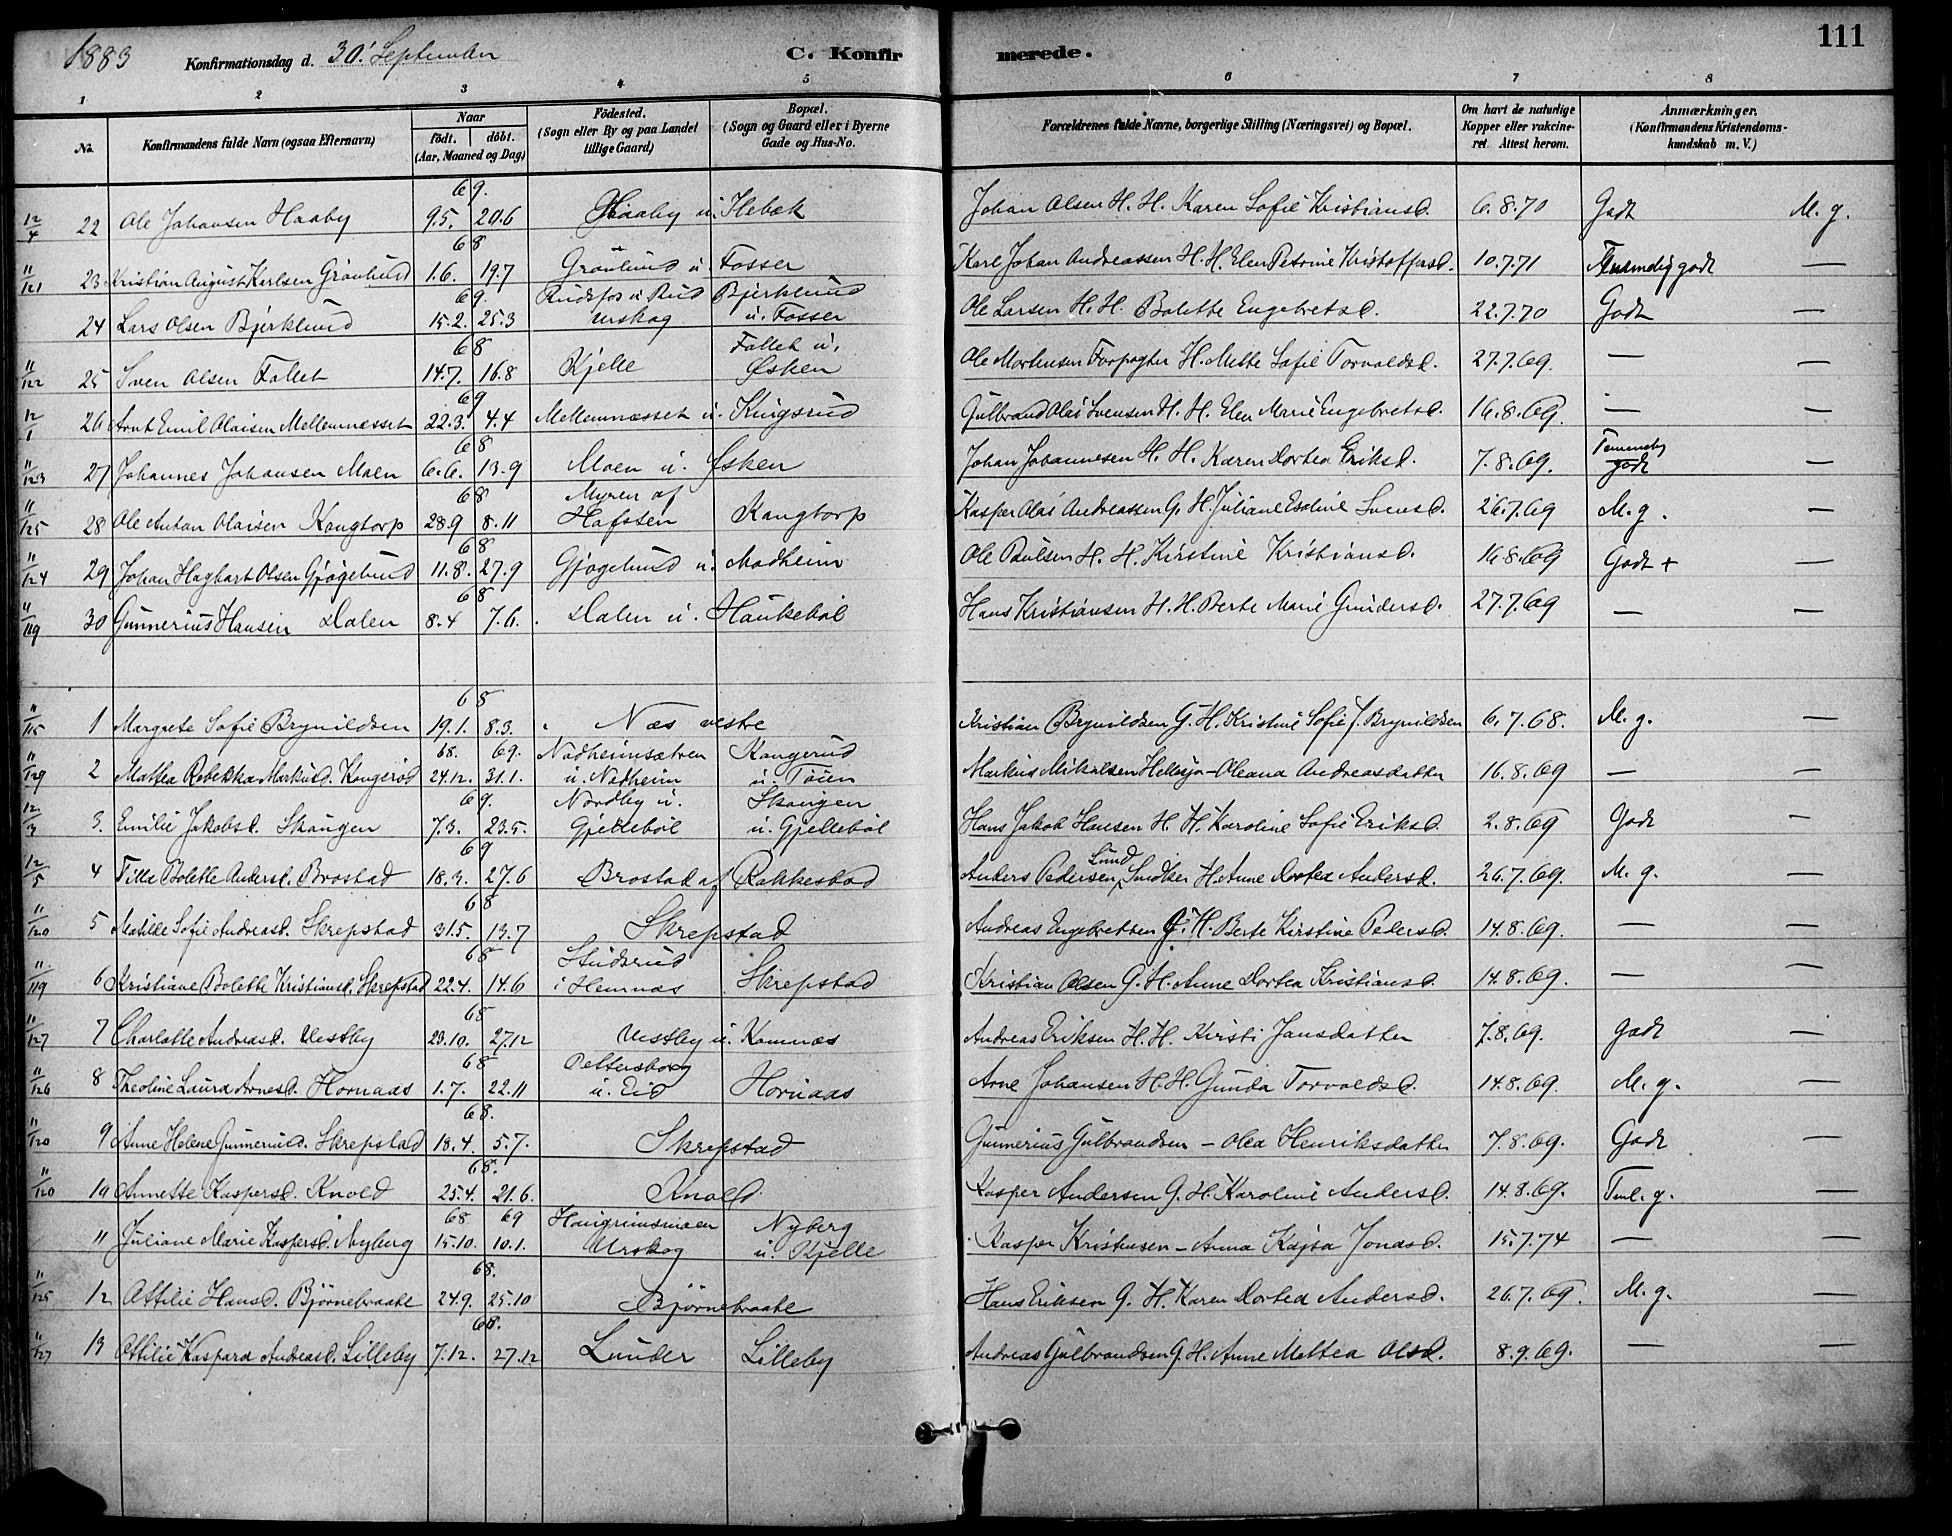 1883 Konfirmationsdag d. 30' September C. Konfirmerede. 111
1 2 3 4 5 6 7 8
No. Konfirmandens fulde Navn (ogsaa Efternavn) Naar födt. döbt. (Aar, Maaned og Dag) Födested. (Sogn eller By og paa Landet tillige Gaard) Bopæl. (Sogn og Gaard eller i Byerne Gade og Hus-No. Forældrenes fulde Navne, borgerlige Stilling (Næringsvei) og Bopæl. Om havt de naturlige Kopper eller vakcineret. Attest herom. Anmærkninger. (Konfirmandens Kristendomskundskab m. V.)
69.
12/4 22 Ole Johansen Haaby 9.5. 20.6 Haaby u. Ilebæk Johan Olsen H. H. Karen Sofie Kristiansd. 6.8.70 Godt M. g.
68
11/121 23 Kristian August Karlsen Grönlund 1.6. 19.7 Grönlund u. Fosser Karl Johan Andreassen H. H. Elen Petrine Kristoffersd. 10.7.71 Temmelig godt —
69. Rudsfos u. Rud Bjerklund
24 Lars Olsen Bjerklund 15.2. 25.3 Urskog u. Fosser Ole Larsen H. H. Bolette Engebretsd. 22.7.70 Godt —
68 Fallet u.
11/122 25 Sven Olsen Fallet 14.7. 16.8 Kjelle Øsken Ole Mortensen Forpagter H. Mette Sofie Torvaldsd. 27.7.69. — —
69
12/1 26 Arnt Emil Olaisen Mellemnæsset 22.3. 4.4 Mellemnæsset u. Kingsrud Gulbrand Olai Svensen H. H. Elen Marie Engebretsd. 16.8.69. — —
68
11/123 27 Johannes Johansen Moen 6.6. 13.9 Moen u. Øsken Johan Johannesen H. H. Karen Dortea Eriksd. 7.8.69. Temmelig godt —
68 Myren af
11/125 28 Ole Anton Olaisen Kangtorp 28.9 8.11 Hafsten Kangtorp Kasper Olai Andreassen G. H. Juliane Esoline Svensd. 26.7.69 M. g. —
68
11/124 29 Johan Hagbart Olsen Gjøgelund 11.8. 27.9 Gjøgelund u. Nadheim Ole Paulsen H. H. Kirstine Kristiansd. 16.8.69 Godt + —
68
11/119 30 Gunnerius Hansen Dalen 8.4 7.6. Dalen u. Haukeböl Hans Kristiansen H. H. Berte Marie Gundersd. 27.7.69 — —
68
11/115 1 Margrete Sofie Brynildsen 19.1. 8.3. Næs vestre Kristian Brynildsen G. H. Kristine Sofie J. Brynildsen 6.7.68. M. g. —
68. 69. Nadheimsætren Kangerud
11/129 2 Mattea Rebekka Markusd. Kangerød 24.12. 31.1. u. Nadheim u. Töien Markus Mikalsen Hellesjø - Oleana Andreasdatter 16.8.69 — —
69. Nordby u. Skougen
12/3 3. Emilie Jakobsd. Skougen 7.3. 23.5. Gjelleböl u. Gjelleböl Hans Jakob Hansen H. H. Karoline Sofie Eriksd. 2.8.69 Godt —
69 Lund
12/5 4 Tilla Bolette Andersd. Brostad 18.3. 27.6 Brostad af Rakkestad Anders Pedersen Snedker H. Anne Dortea Andersd. 26.7.69. M. g. —
68
11/120 5 Matilde Sofie Andreasd. Skrepstad 31.5. 13.7 Skrepstad Andreas Engebretsen G. H. Berte Kirstine Pedersd. 14.8.69. — —
68 Studsrud
11/119 6 Kristiane Bolette Kristiansd. Skrepstad 22.4. 14.6 i Hemnæs Skrepstad Kristian Olsen G. H. Anne Dortea Kristiansd. 14.8.69. — —
68
11/127 7 Charlotte Andreasd. Vestby 23.10. 27.12 Vestby u. Kamnæs Andreas Eriksen H. H. Kirsti Jansdatter 7.8.69. Godt —
68 Pettersborg
11/126 8 Theoline Laura Arnesd. Hornaas 1.7. 22.11 u. Eid Hornaas Arne Johansen H. H. Gunda Torvaldsd. 14.8.69. M. g. —
68.
11/120 9 Anne Helene Gunneriusd. Skrepstad 18.4. 5.7. Skrepstad Gunnerius Gulbrandsen - Olea Henriksdatter 7.8.69. Godt —
68.
11/120 10 Annette Kaspersd. Knold 25.4. 21.6. Knold Kasper Andersen G. H. Karoline Andersd. 14.8.69. Teml. g. —
68 69 Haugrimsmoen Nyberg
11 Juliane Marie Kaspersd. Nyberg 15.10. 10.1. Urskog u. Kjelle Kasper Kristensen - Anna Kajsa Jonasd. 15.7.74 — —
68.
11/125 12 Attilie Hansd. Björnebraate 24.9. 25.10 Björnebraate Hans Eriksen G. H. Karen Dortea Andersd. 26.7.69. M. g. —
68.
11/127 13 Attilie Kaspara Andreasd. Lilleby 7.12. 27.12 Lunder Lilleby Andreas Gulbrandsen G. H. Anne Mattea Olsd. 8.9.69. — —